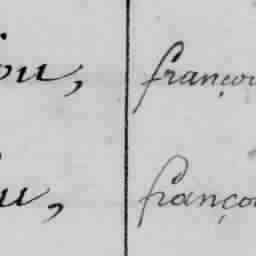 ou, françoi
u, françoi